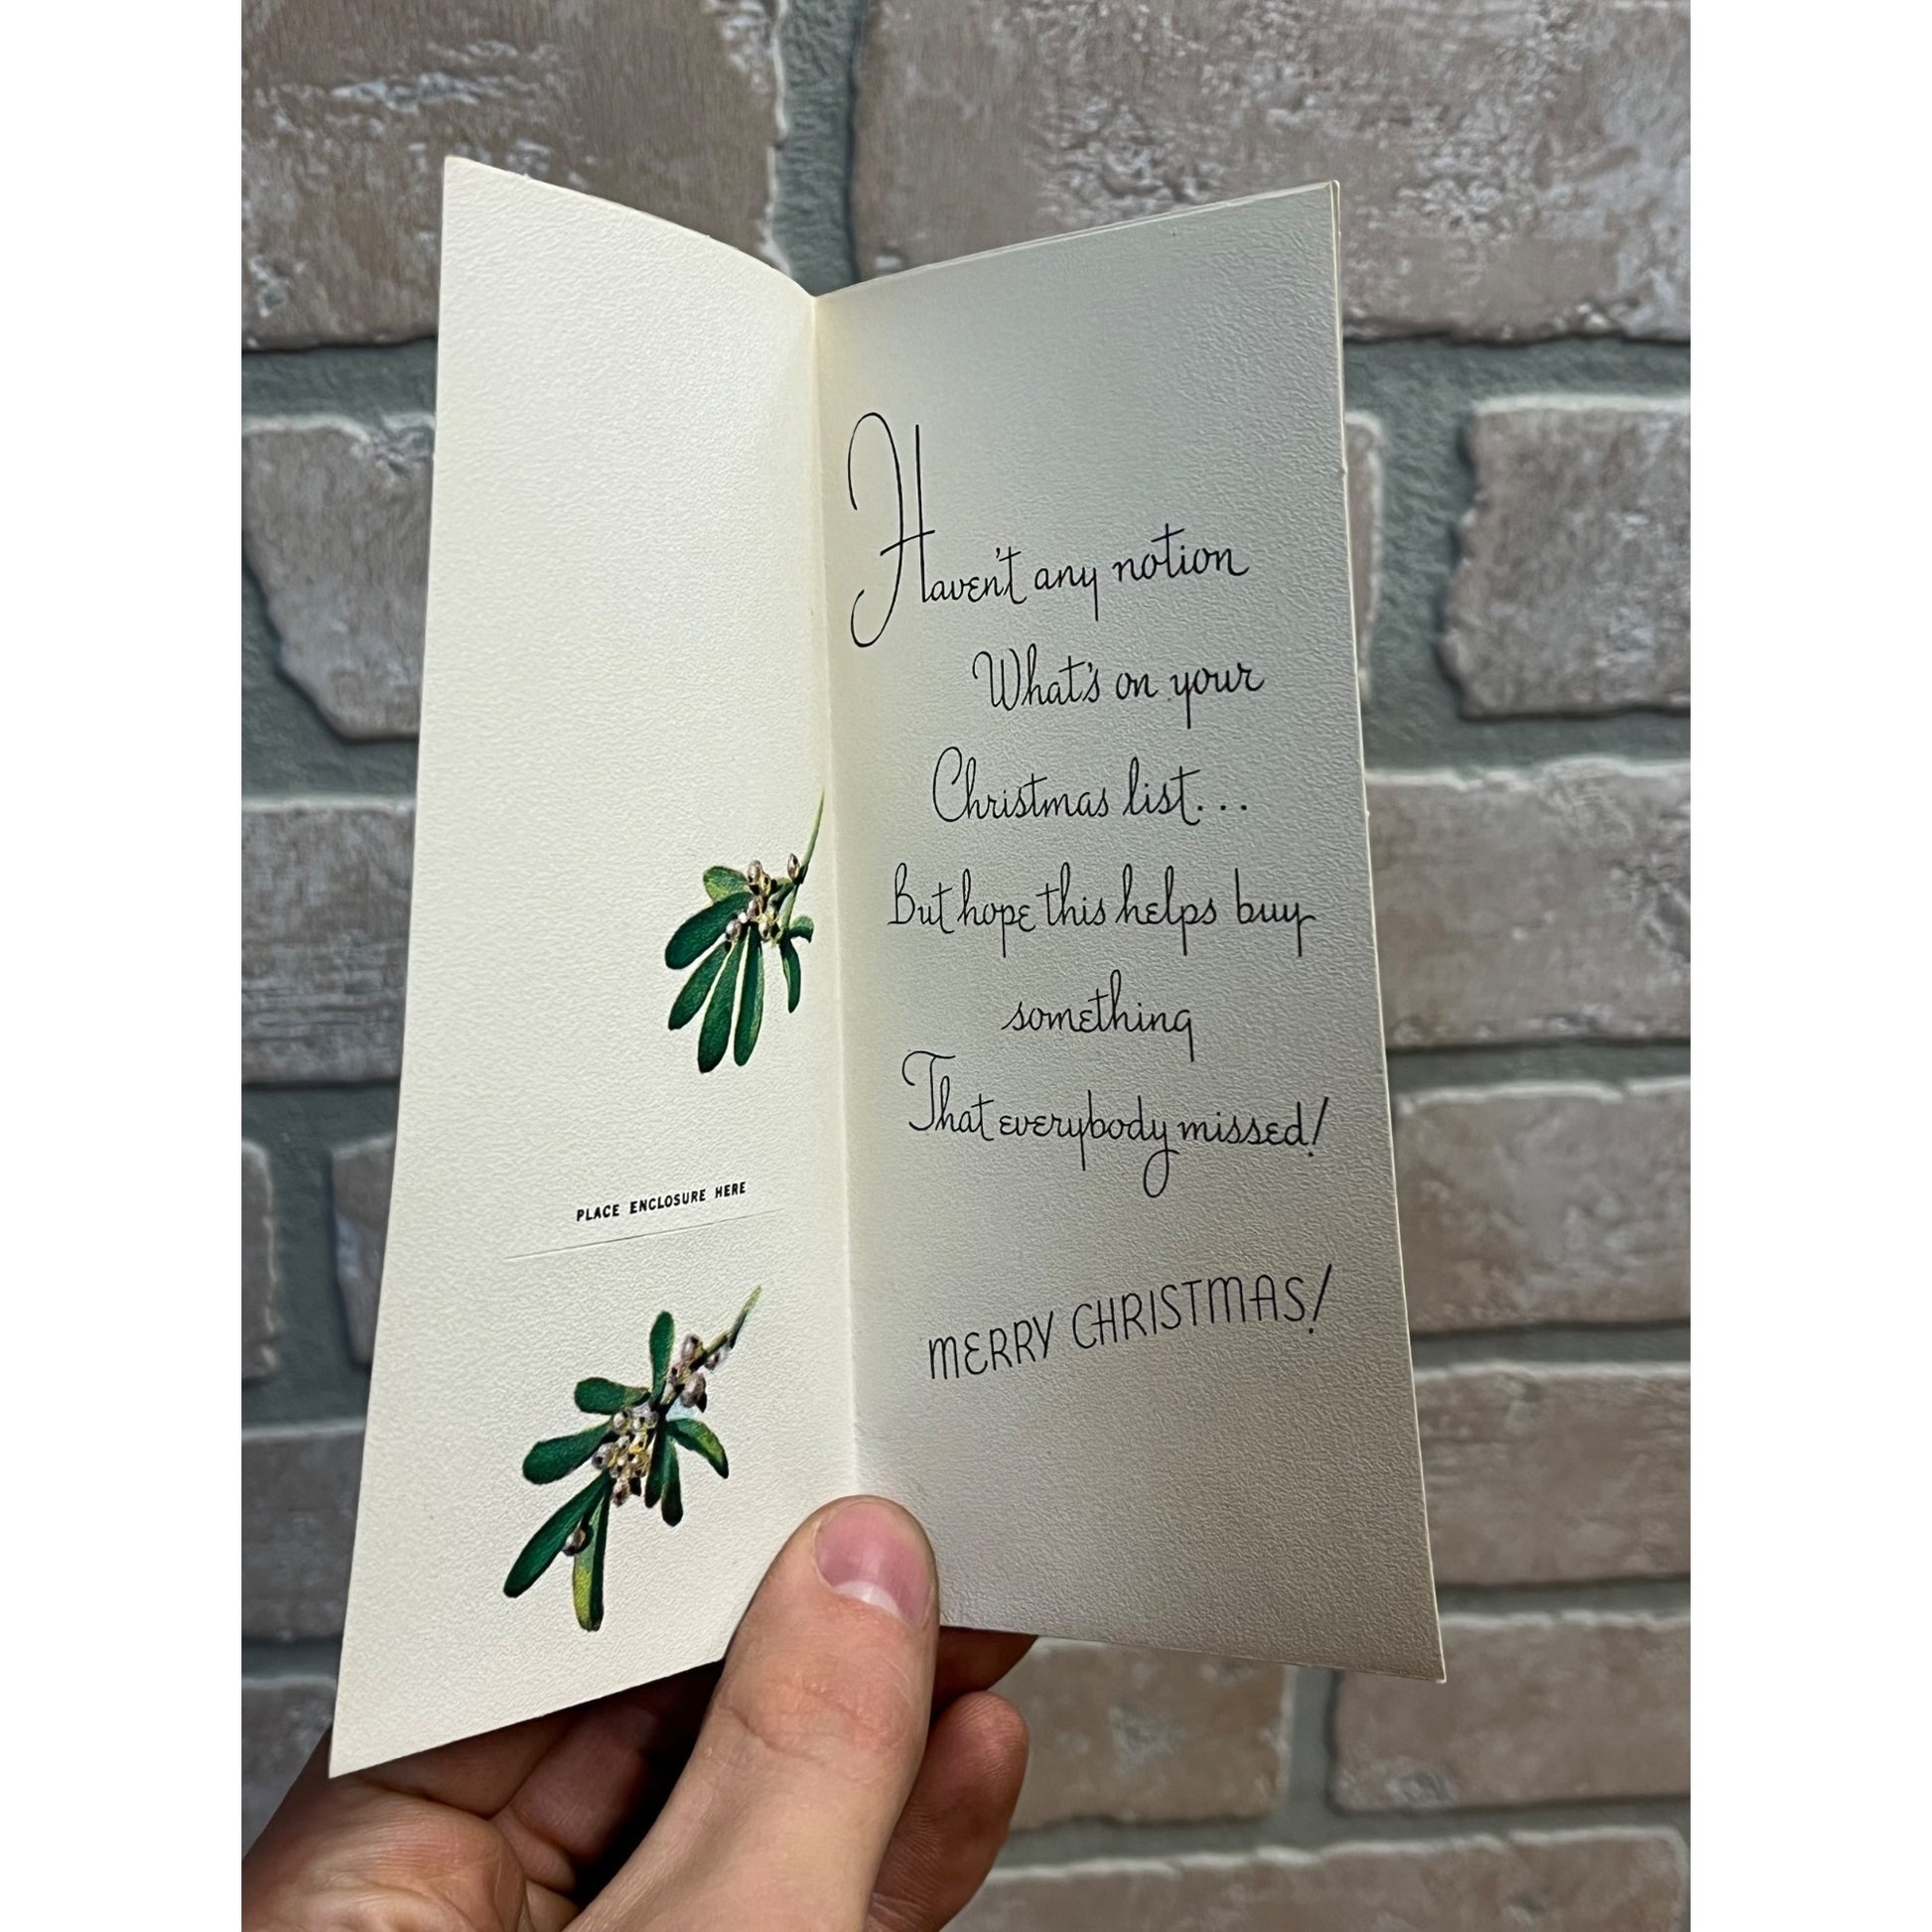 PLACE ENCLOSURE HERE
Haven't any notion
What's on your
Christmas list...
But hope this helps buy
something
That everybody missed!
MERRY CHRISTMAS!